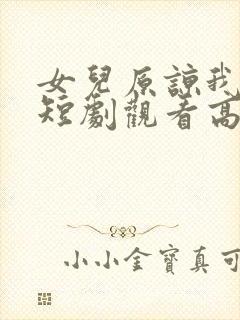 女兒原諒我
短劇觀看高
小小金寶真可